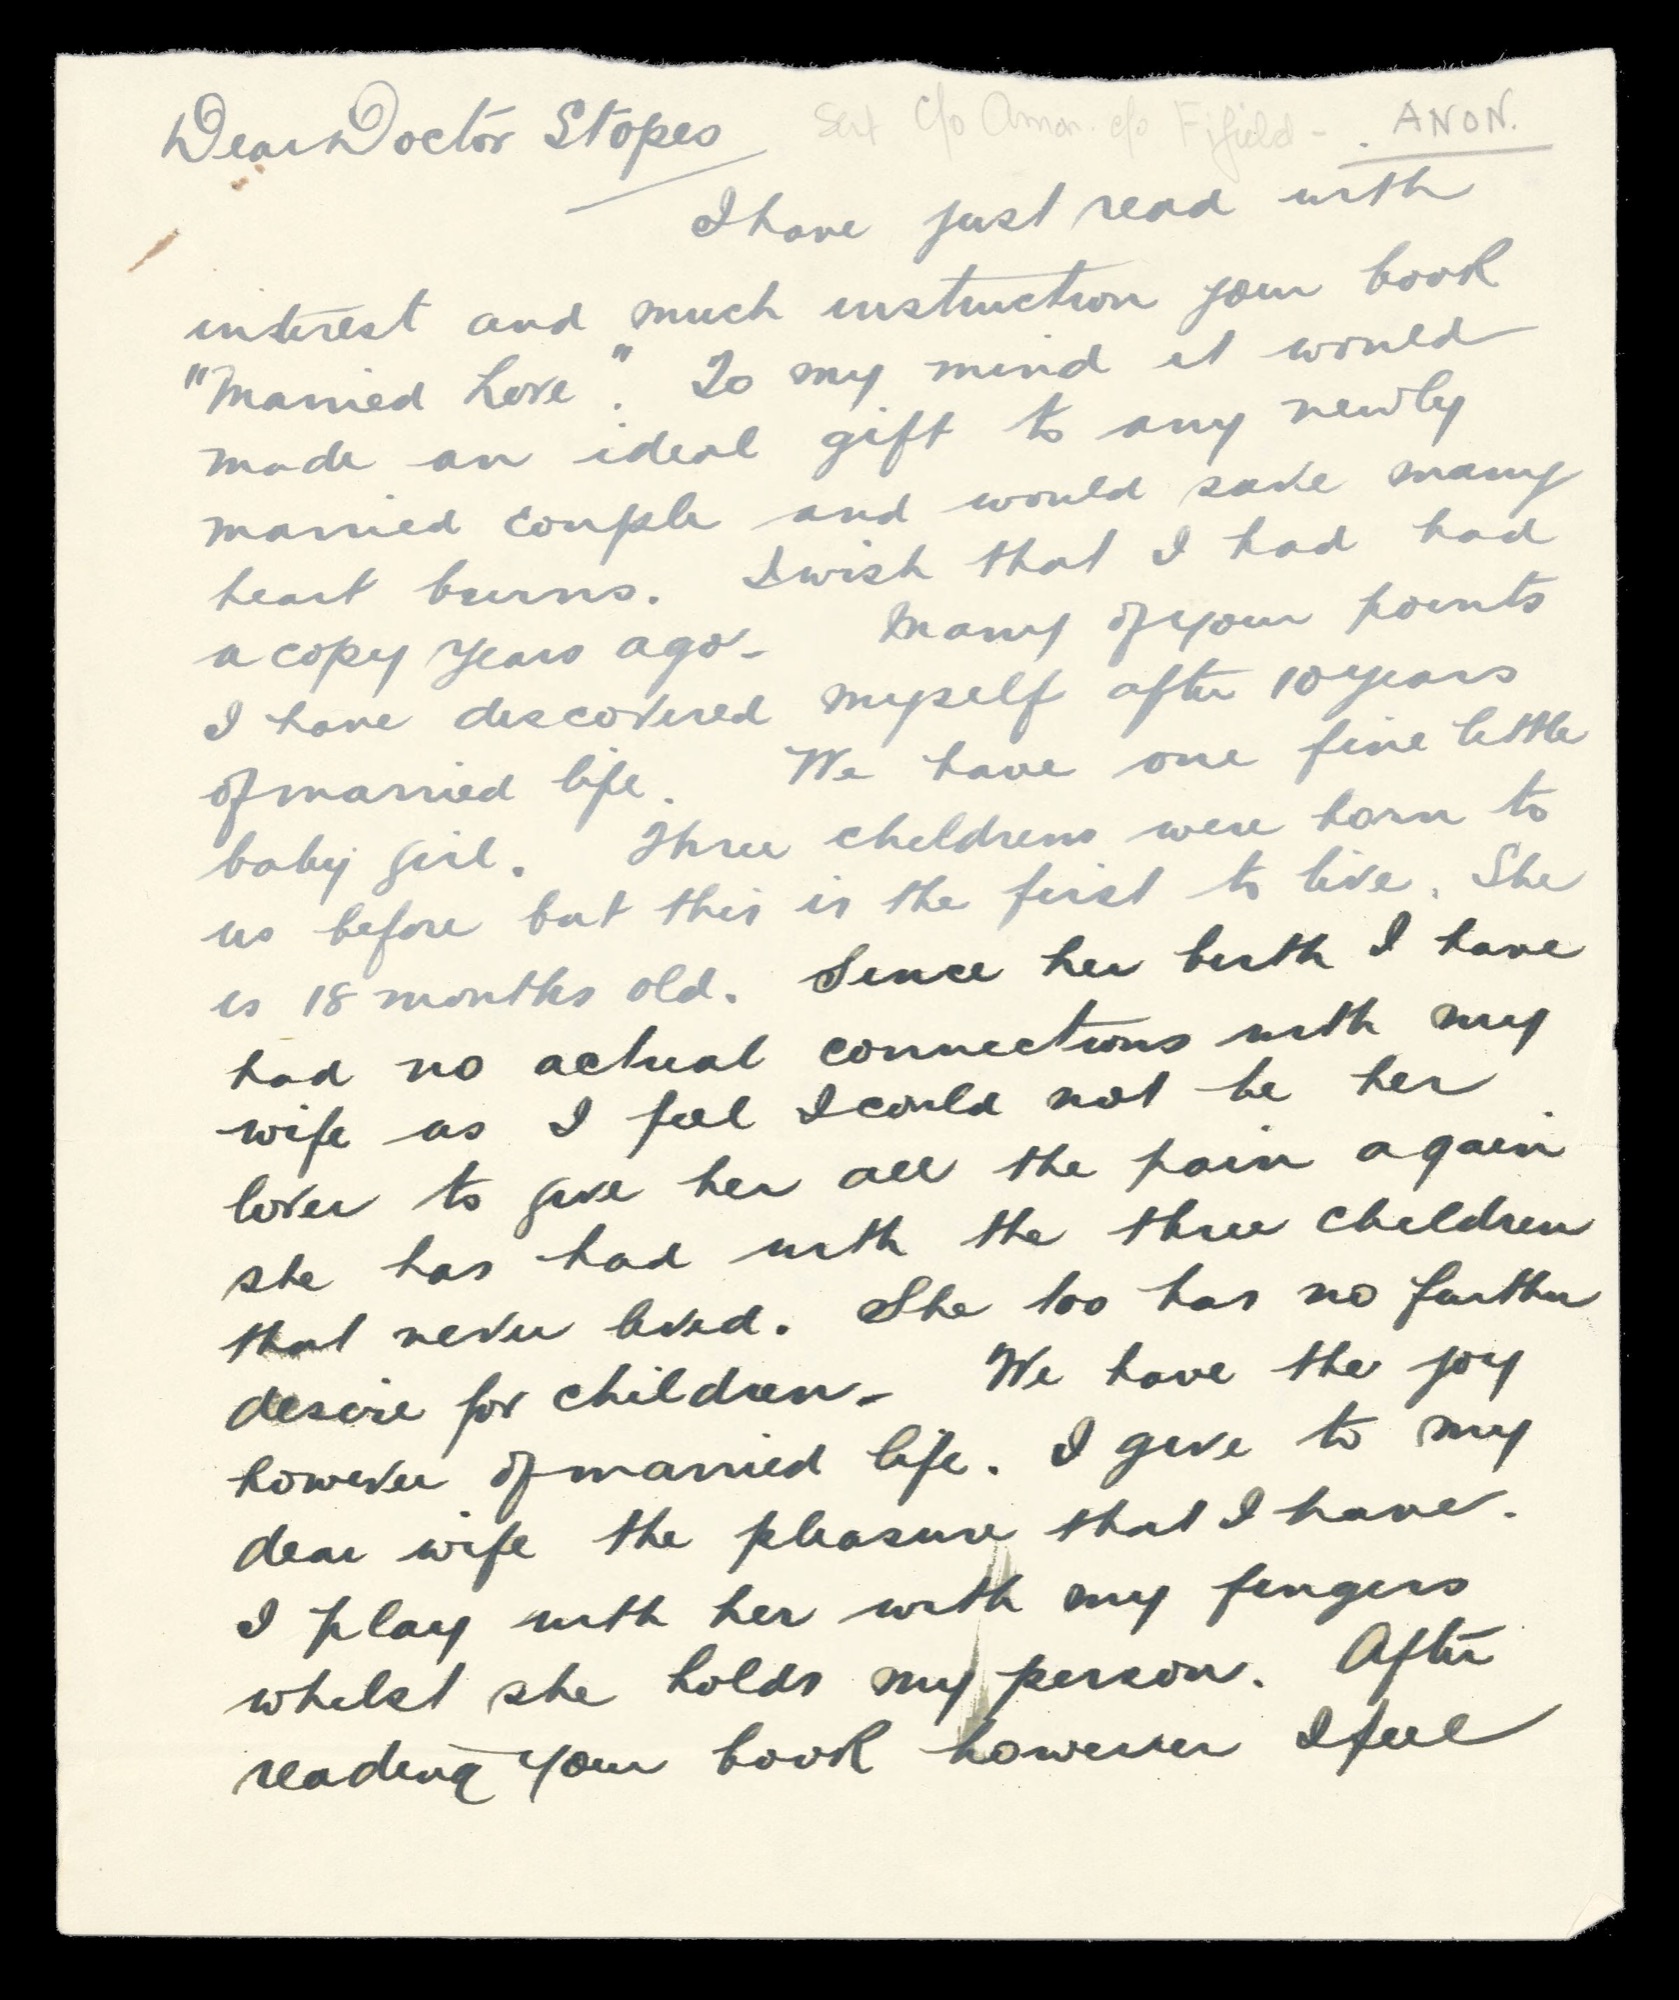 Dear Doctor Stopes
Sent c/o Anon. c/o Fifield - ANON.
I have just read with
interest and much instruction your book
"Married Love". To my mind it would
made an ideal gift to any newly
married couple and would save many
heart burns. I wish that I had had
a copy years ago - Many of your points
I have discovered myself after 10 years
of married life. We have one fine little
baby girl. Three childrens were born to
us before but this is the first to live. She
is 18 months old. Since her birth I have
had no actual connections with my
wife as I feel I could not be her
lover to give her all the pain again
she has had with the three children
that never lived. She too has no further
desire for children - We have the joy
however of married life. I give to my
dear wife the pleasure that I have.
I play with her with my fingers
whilst she holds my person. After
reading your book however I feel